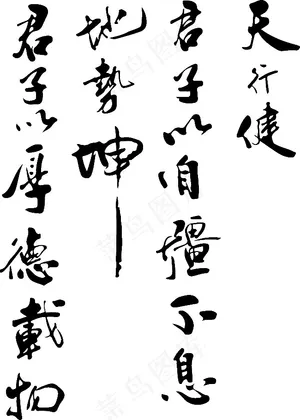 天行健
君子以自疆不息
地勢坤
君子以厚德載物